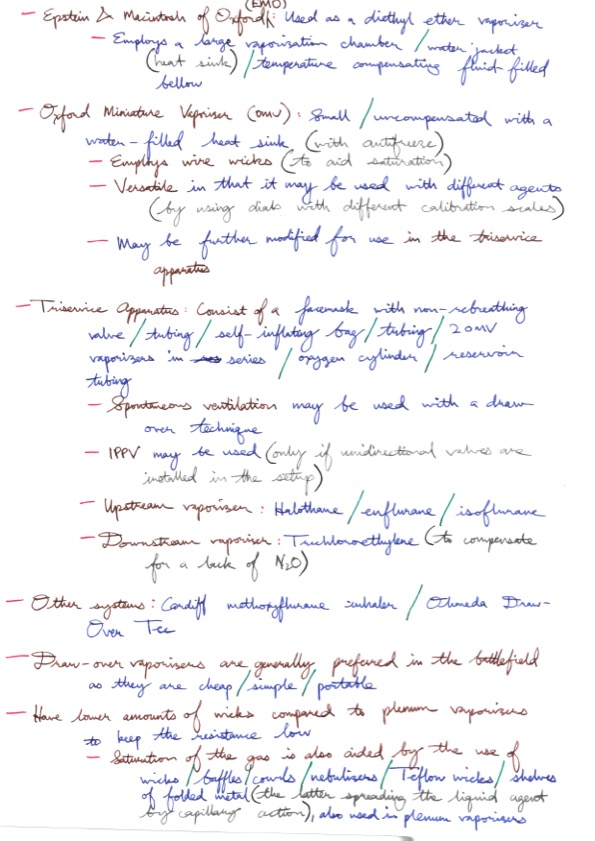 (EMO)
- Epstein & Macintosh of Oxford: Used as a diethyl ether vaporizer
- Employs a large vaporization chamber / water jacket
(heat sink) / temperature compensating fluid filled
bellow
- Oxford Miniature Vaporiser (OMV): Small / uncompensated with a
water-filled heat sink (with antifreeze)
- Employs wire wicks (to aid saturation)
- Versatile in that it may be used with different agents
(by using dials with different calibration scales)
- May be further modified for use in the triservice
apparatus
- Triservice Apparatus: Consist of a facemask with non-rebreathing
valve / tubing / self-inflating bag / tubing / 2 OMV
vaporizers in series / oxygen cylinder / reservoir
tubing
- Spontaneous ventilation may be used with a draw-
over technique
- IPPV may be used (only if unidirectional valves are
installed in the setup)
- Upstream vaporizer: Halothane / enflurane / isoflurane
- Downstream vaporizer: Trichloroethylene (to compensate
for a lack of N2O)
- Other systems: Cardiff methoxyflurane inhaler / Ohmeda Draw-
Over Tec
- Draw-over vaporizers are generally preferred in the battlefield
as they are cheap / simple / portable
- Have lower amounts of wicks compared to plenum vaporizers
to keep the resistance low
- Saturation of the gas is also aided by the use of
wicks / baffles / cowls / nebulizers / Teflon wicks / shelves
of folded metal (the latter spreading the liquid agent
by capillary action), also used in plenum vaporizers